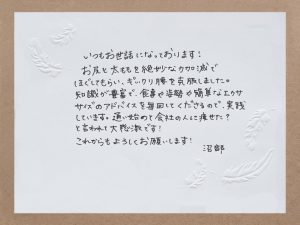 いつもお世話になっております!
お尻と太ももを絶妙な力加減で
ほぐしてもらい、ギックリ腰を克服しました。
知識が豊富で、食事や姿勢や簡単なエクササ
サイズのアドバイスを毎回してくださるので、実践
しています。通い始めて会社の人に痩せた?
と言われて大感激です!
これからもよろしくお願いします!
沼部